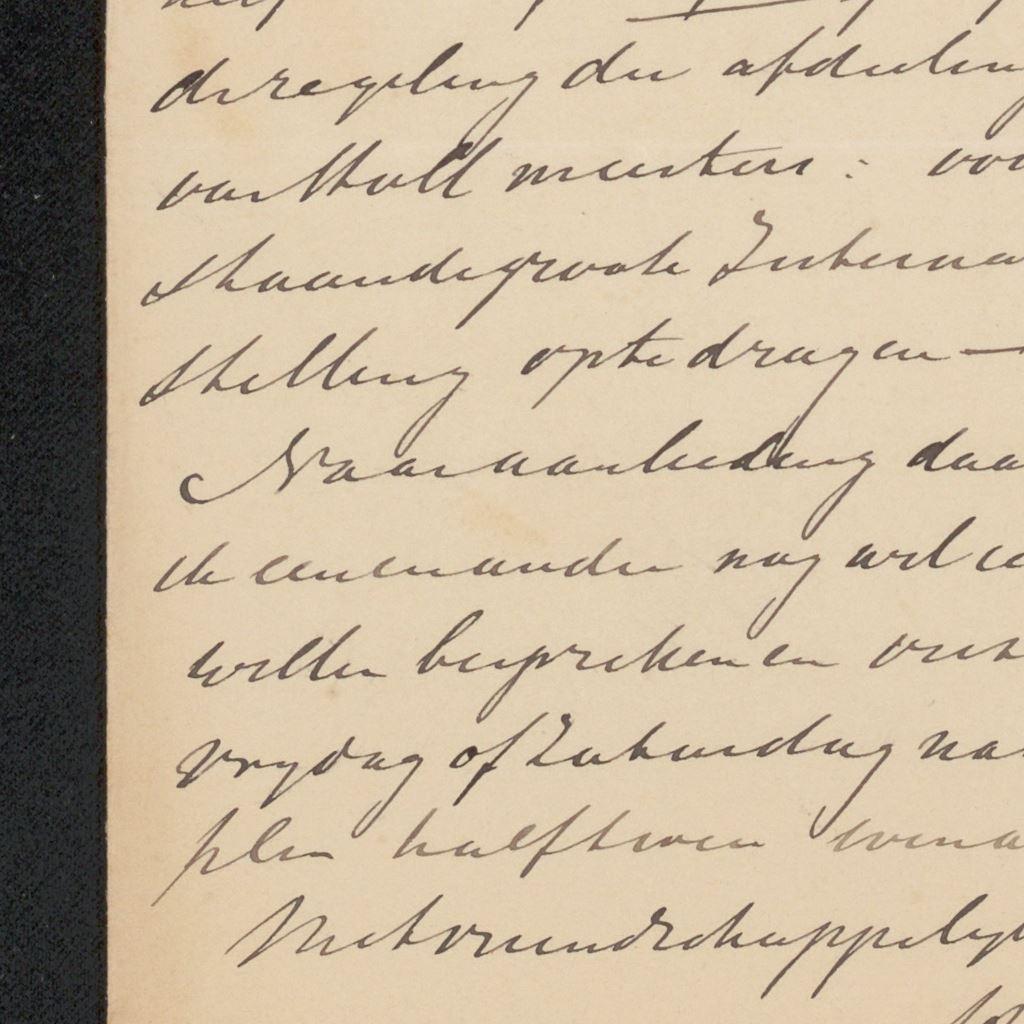 de regeling der afdeeling
van Hall meesters: voor
staande groote Interna
stelling optedragen —
Naar aanleiding daa
ik een en ander nog wel ee
willen bespreken en
vrydag of Zaturdag na
half twee
Met vriendschappelyk